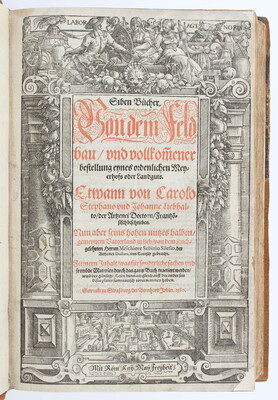 LABOR
NOBIS
Siben Bücher,
Von dem Feld
bau / vnd vollkom̄ener
bestellung eynes ordenlichen Mey-
erhofs oder Landguts.
Etwann von Carolo
Stephano vnd Johanne Liebhal-
to / der Artzenei Doctorn / Frantzö-
sisch beschriben.
Nun aber seins hohen nutzes halben /
gemeynem Vatterland zu lieb / von dem Hoch-
gelehrten Herrn Melchiore Sebizio Silesio, der
Artzenei Doctore, inn Teutsch gebracht.
durch das gantz Buch tractiert werden /
Mit Röm. Key. May. Freiheit.